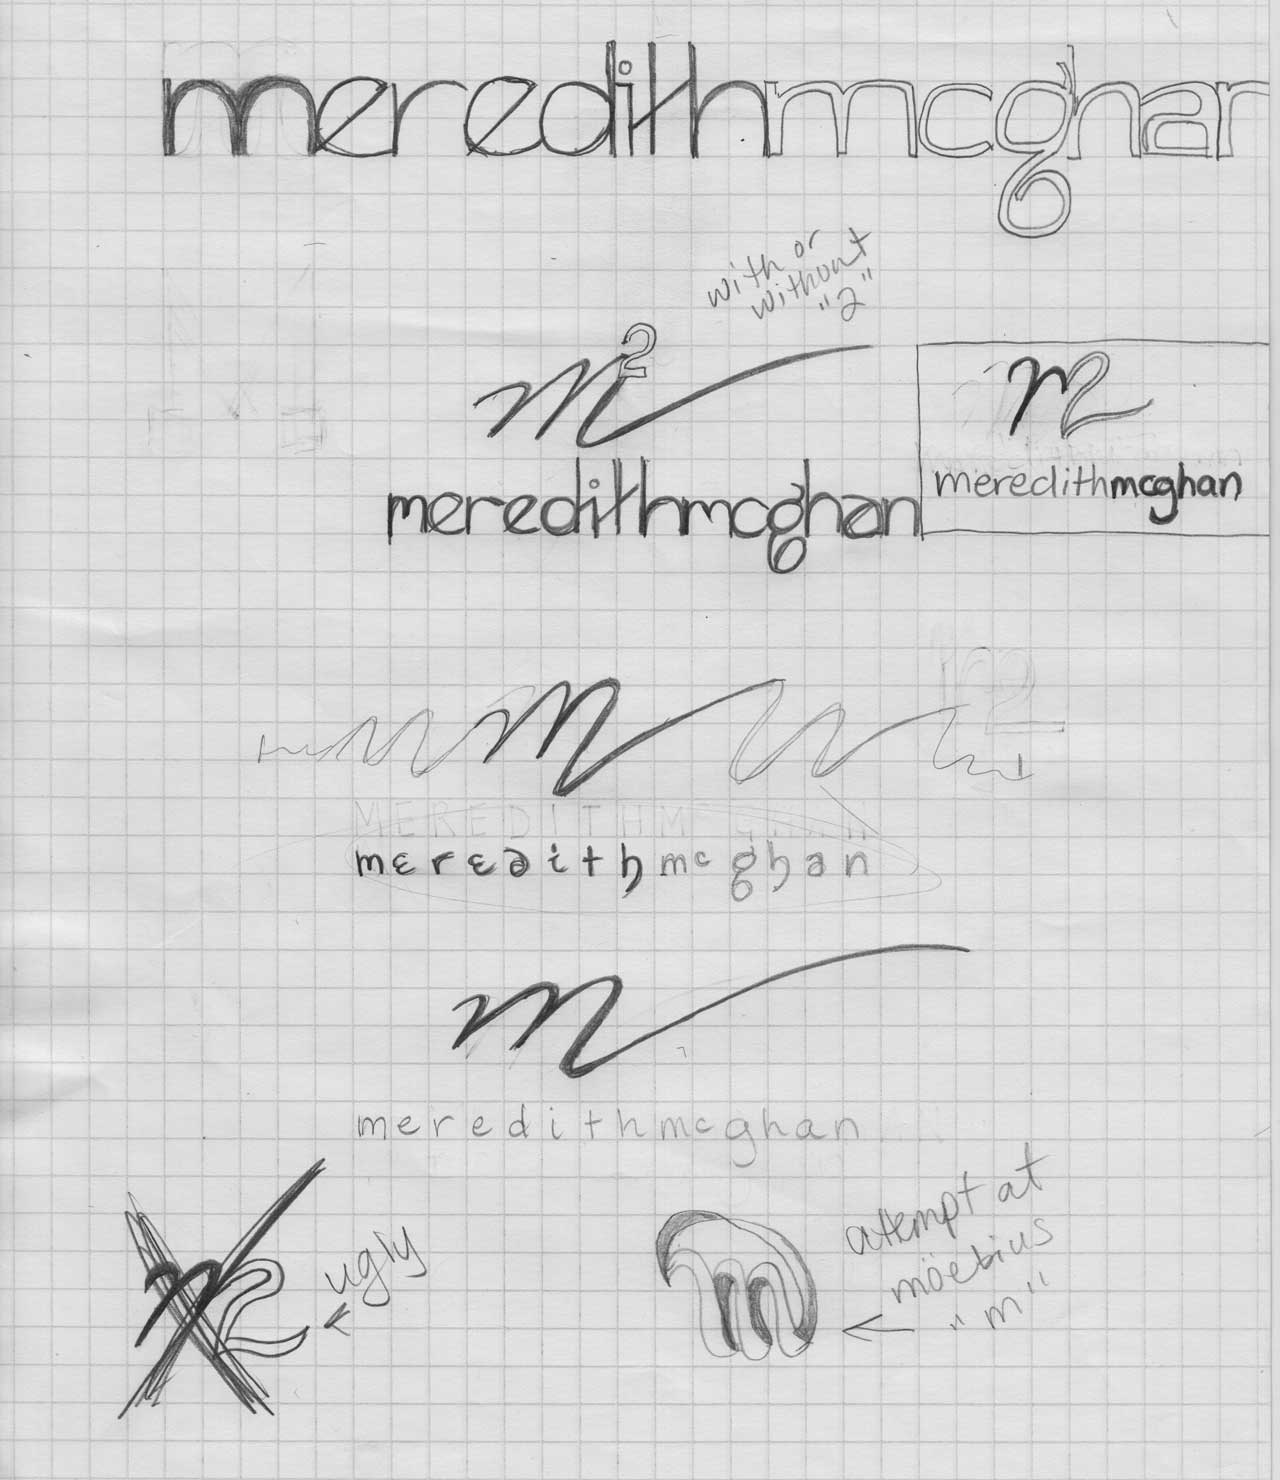 meredithmcghan
with or
without
"2"
m2
m2
meredithmcghan
meredithmcghan
m
MEREDITHMCGHAN
meredithmcghan
m
meredithmcghan
m2
ugly
m
attempt at
möebius
"m"